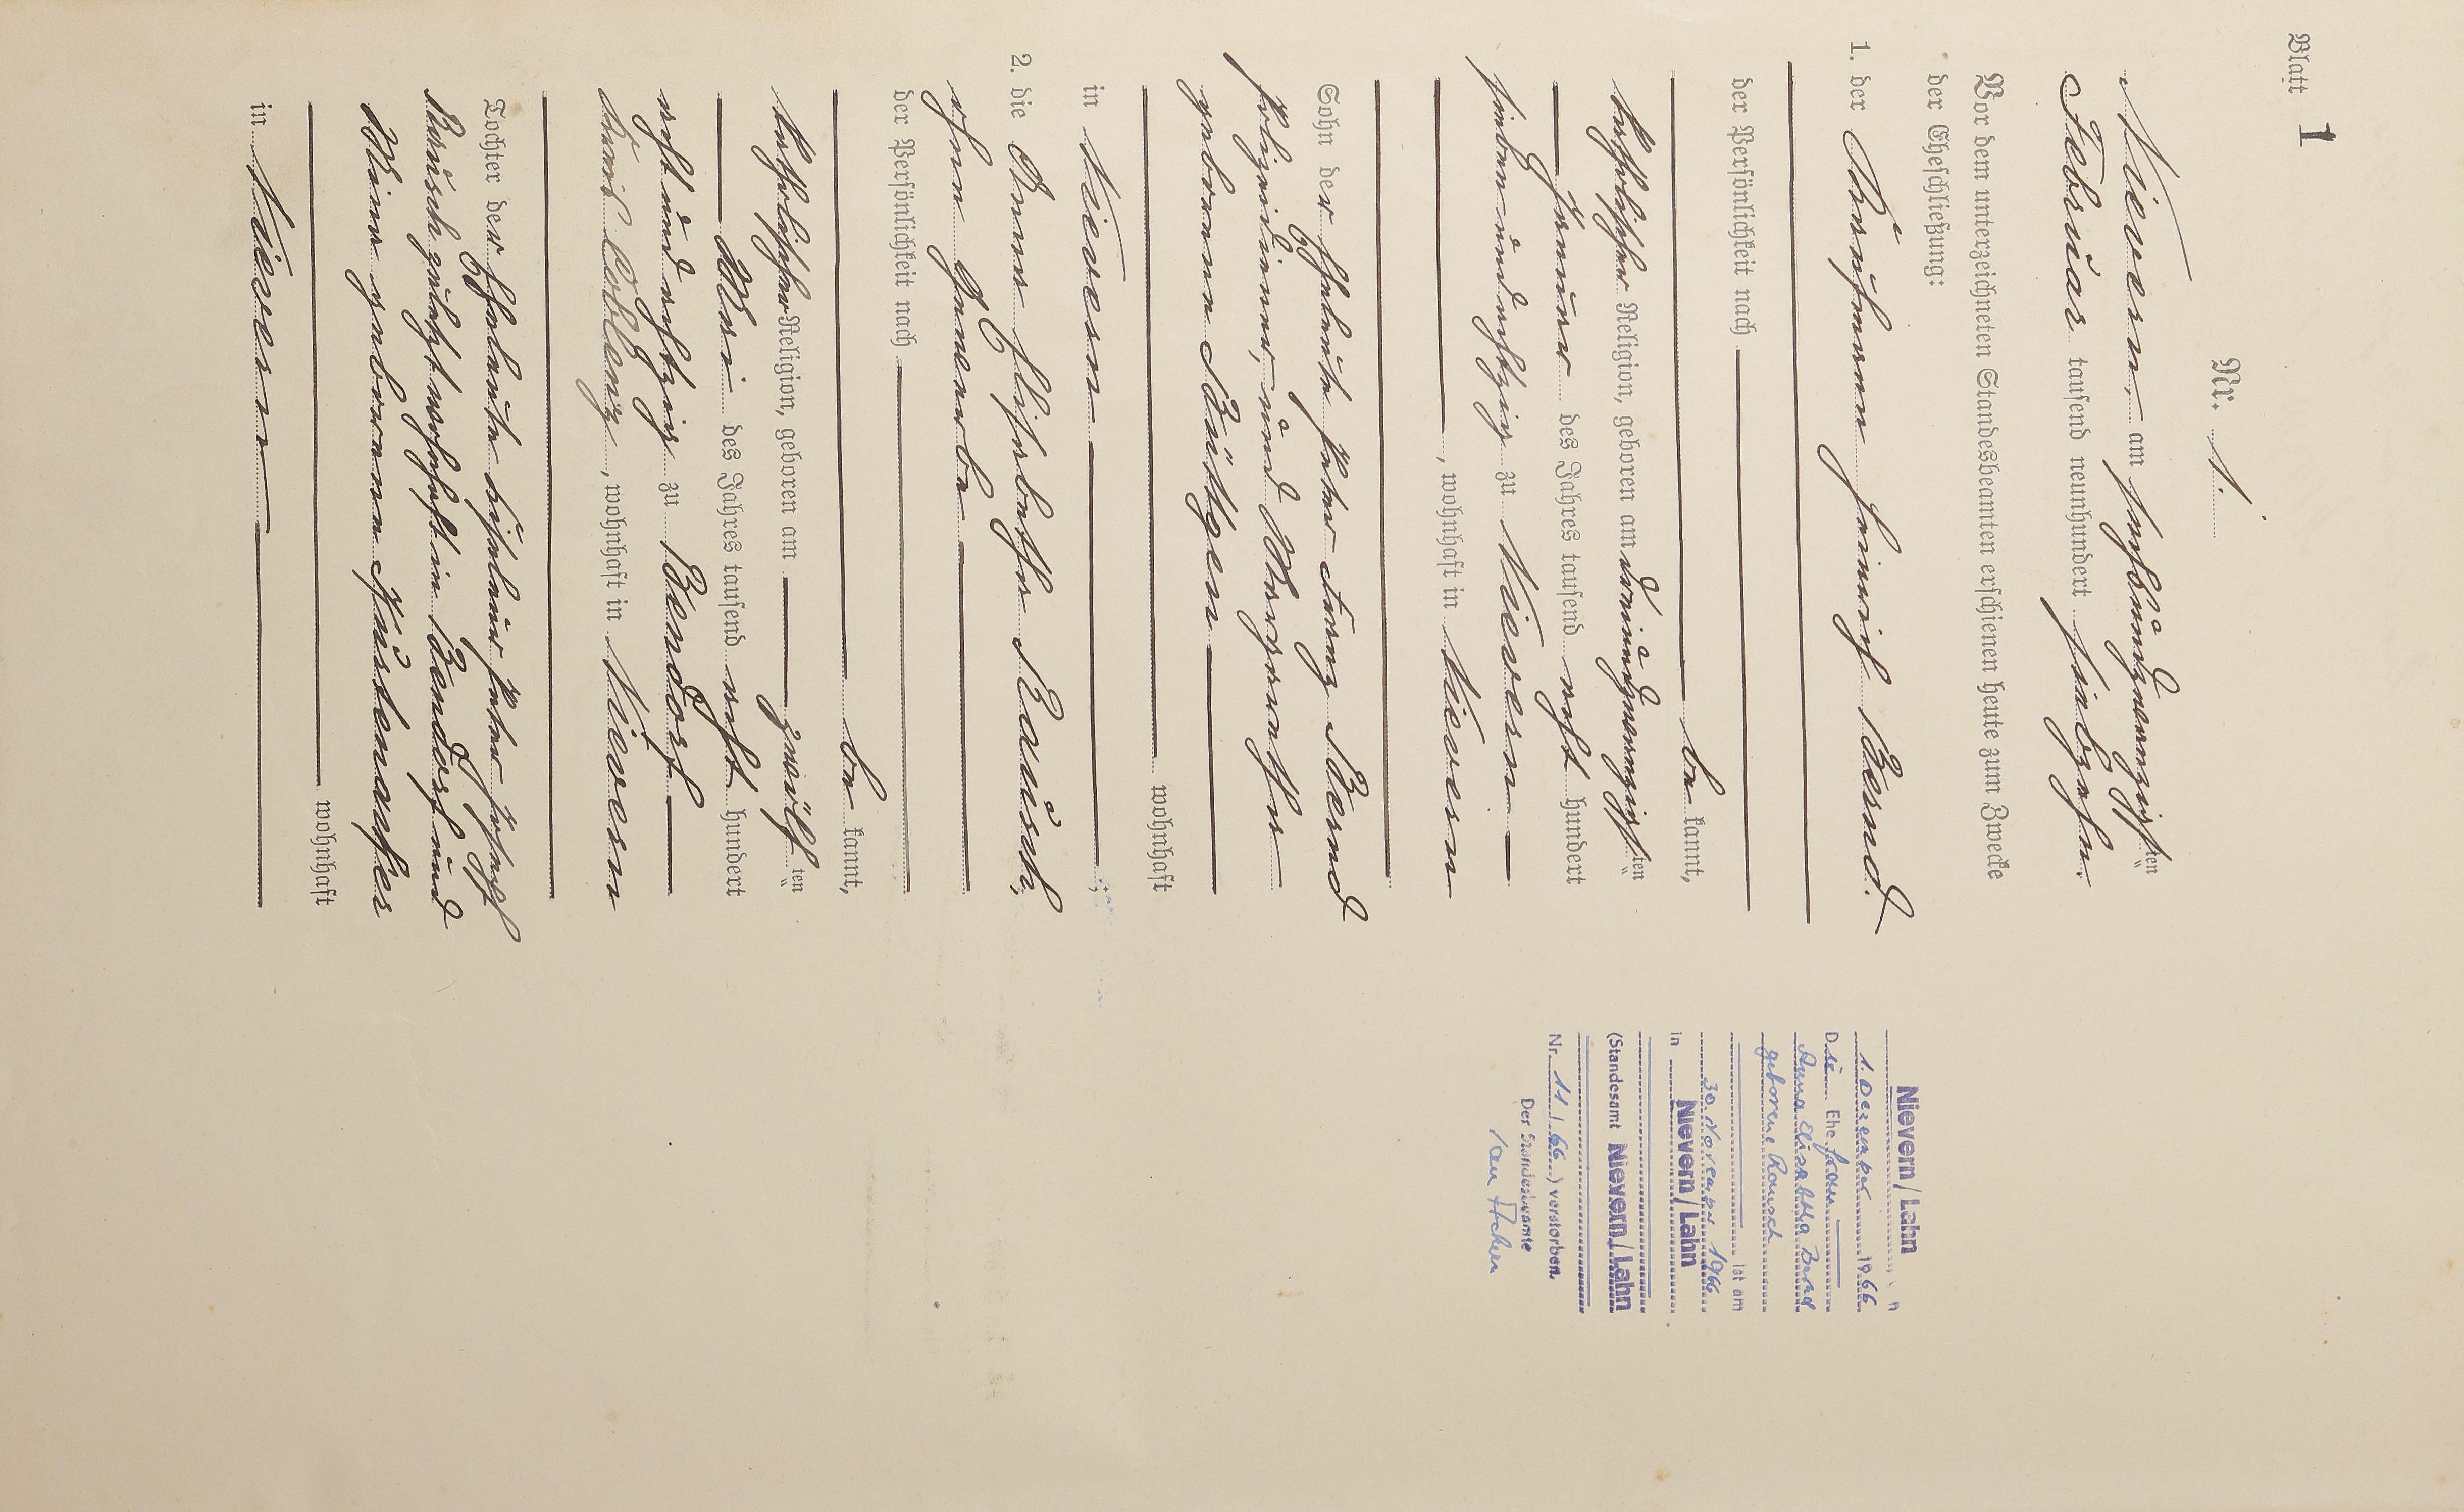 Blatt 1
Nr. 1.
Nievern, am fünfundzwanzigsten
Februar tausend neunhundert fünfzehn.
Vor dem unterzeichneten Standesbeamten erschienen heute zum Zwecke
der Eheschließung:
1. der Kaufmann Heinrich Bernd.
der Persönlichkeit nach
be kannt,
katholischer Religion, geboren am dreiundzwanzigsten
Januar des Jahres tausend acht hundert
sieben und achtzig zu Nievern
, wohnhaft in Nievern
Sohn der Eheleute Peter Franz Bernd
Polizeidiener, und Margaretha
geborene Büttgen
wohnhaft
in Nievern ;
2. die Anna Elisabetha Rausch,
ohne Gewerbe
der Persönlichkeit nach
be kannt,
katholischer Religion, geboren am zwölf ten
Mai des Jahres tausend acht hundert
acht und achtzig zu Bendorf
Kreis Coblenz, wohnhaft in Nievern
Tochter der Eheleute Peter Joseph
Rausch zuletzt wohnhaft in Bendorf und
geborenen
wohnhaft
in Nievern
Nievern/Lahn
1. Dezember 1966
Die Ehefrau
Anna Elisabetha Bernd
geborene Rausch
ist am
30. November 1966
in Nievern/Lahn
(Standesamt Nievern/Lahn
Nr. 11/66) verstorben.
Der Standesbeamte